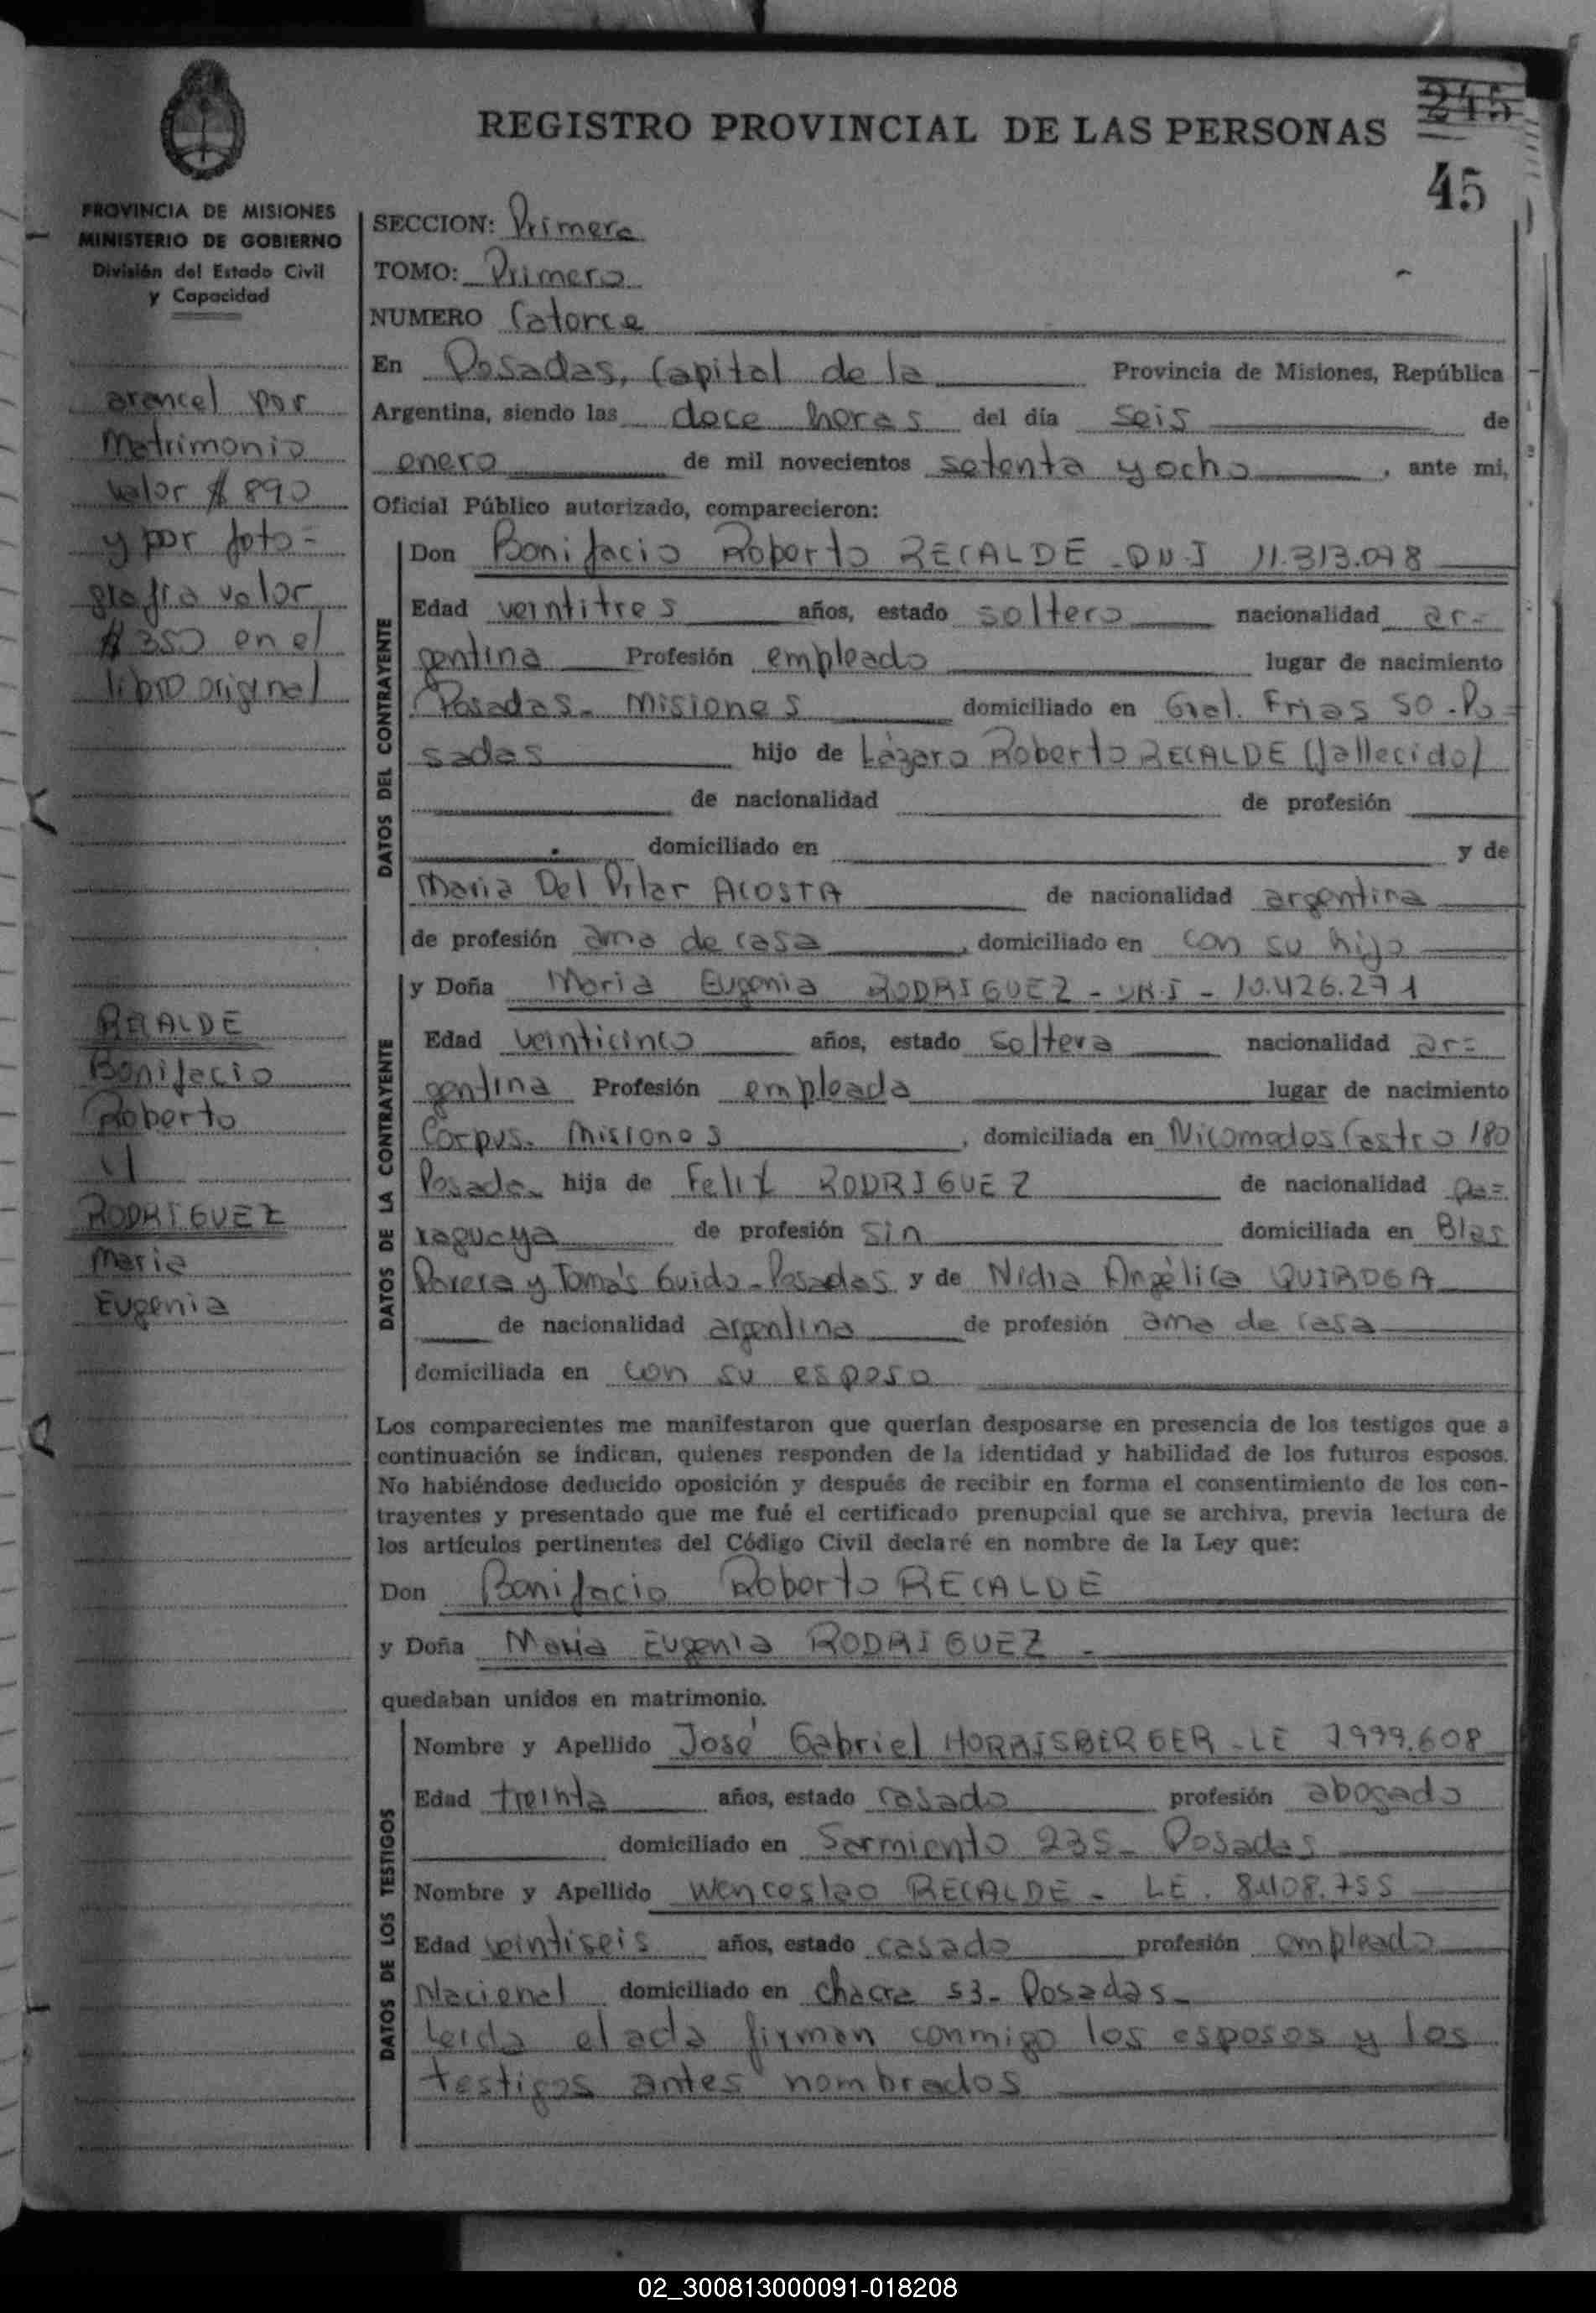 245
REGISTRO PROVINCIAL DE LAS PERSONAS
45
PROVINCIA DE MISIONES
MINISTERIO DE GOBIERNO
División del Estado Civil
y Capacidad
arancel por
Matrimonio
valor $ 890
y por foto=
grafia valor
$ 350 en el
libro original
RECALDE
Bonifacio
Roberto
y
RODRIGUEZ
Maria
Eugenia
SECCION: Primera
TOMO: Primero
NUMERO Catorce
En Posadas, Capital de la Provincia de Misiones, República
Argentina, siendo las doce horas del día seis de
enero de mil novecientos setenta y ocho, ante mi,
Oficial Público autorizado, comparecieron:
DATOS DEL CONTRAYENTE
Don Bonifacio Roberto RECALDE - DNI 11.313.098
Edad veintitres años, estado soltero nacionalidad ar=
gentina Profesión empleado lugar de nacimiento
Posadas - Misiones domiciliado en Gral. Frias 50 - Po=
sadas hijo de Lázaro Roberto RECALDE (fallecido)
de nacionalidad de profesión
domiciliado en y de
Maria Del Pilar ACOSTA de nacionalidad argentina
de profesión ama de casa, domiciliado en con su hijo
DATOS DE LA CONTRAYENTE
y Doña Maria Eugenia RODRIGUEZ - DNI - 10.426.271
Edad veinticinco años, estado soltera nacionalidad ar=
gentina Profesión empleada lugar de nacimiento
Corpus - Misiones, domiciliada en Nicomedes Castro 180
Posadas hija de Felix RODRIGUEZ de nacionalidad pa=
raguaya de profesión sin domiciliada en Blas
Parera y Tomás Guido - Posadas y de Nidia Angélica QUIROGA
de nacionalidad argentina de profesión ama de casa
domiciliada en con su esposo
Los comparecientes me manifestaron que querían desposarse en presencia de los testigos que a
continuación se indican, quienes responden de la identidad y habilidad de los futuros esposos.
No habiéndose deducido oposición y después de recibir en forma el consentimiento de los con-
trayentes y presentado que me fué el certificado prenupcial que se archiva, previa lectura de
los artículos pertinentes del Código Civil declaré en nombre de la Ley que:
Don Bonifacio Roberto RECALDE
y Doña Maria Eugenia RODRIGUEZ -
quedaban unidos en matrimonio.
DATOS DE LOS TESTIGOS
Nombre y Apellido José Gabriel HORRISBERGER - LE 7.999.608
Edad treinta años, estado casado profesión abogado
domiciliado en Sarmiento 235 - Posadas
Nombre y Apellido Wenceslao RECALDE - LE. 8.408.755
Edad veintiseis años, estado casado profesión empleado
Nacional domiciliado en chacra 53 - Posadas -
Leida el acta firman conmigo los esposos y los
testigos antes nombrados
02_300813000091-018208